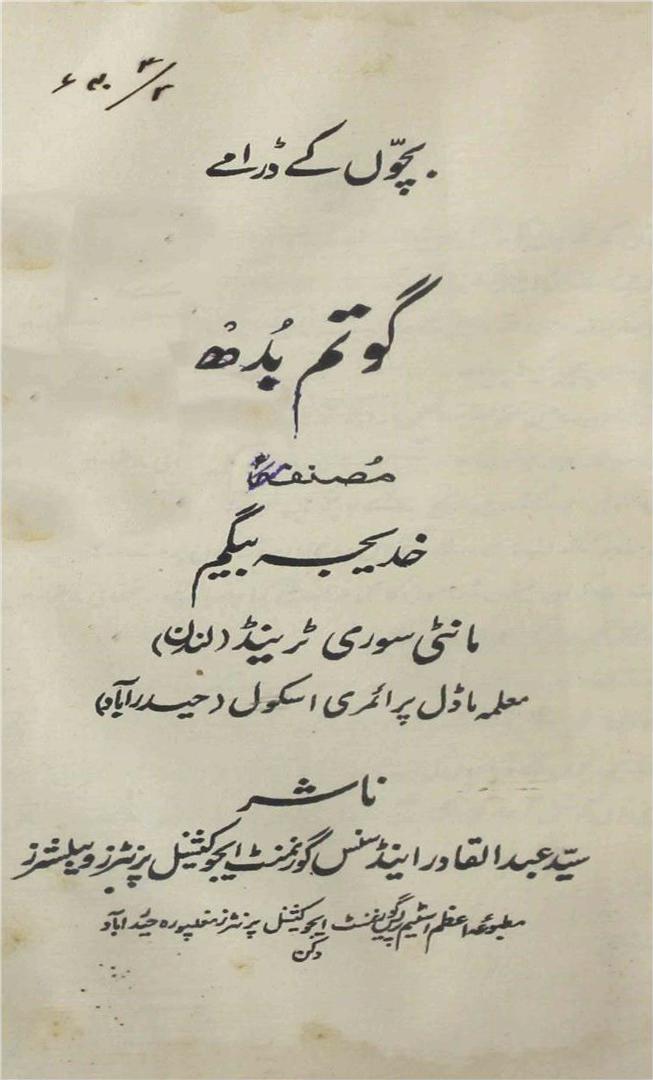 بچّوں کے ڈرامے
گوتم بُدھ
مُصنفہ
خدیجہ بیگم
مانٹی سوری ٹرینڈ (لندن)
معلمہ ماڈل پرائمری اسکول (حیدرآباد)
ناشر
سیّد عبدالقادر اینڈ سنس گورنمنٹ ایجوکیشنل پرنٹرز و پبلشرز
مطبوعہ اعظم اسٹیم پریس گورنمنٹ ایجوکیشنل پرنٹرز مغلپورہ حیدرآباد
دکن